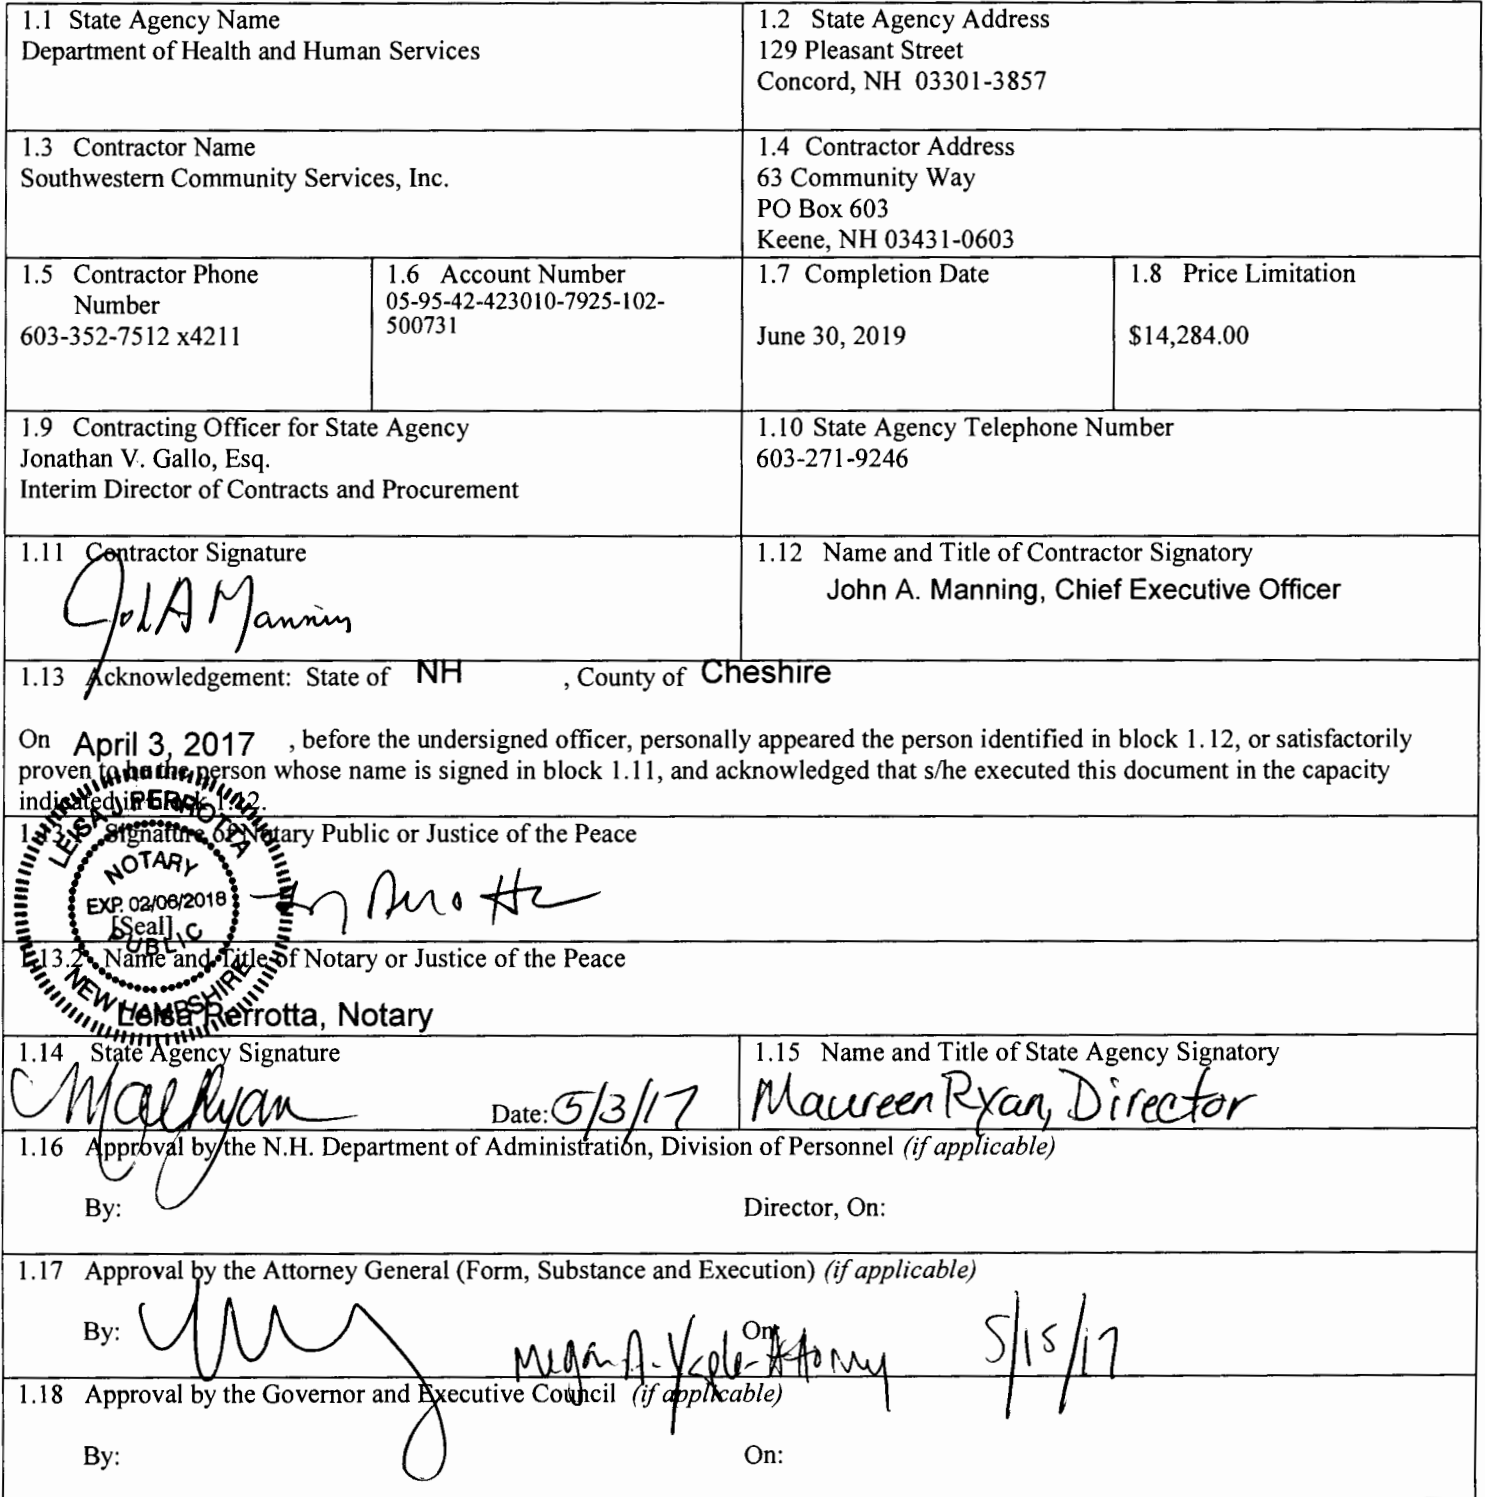 1.1 State Agency Name
Department of Health and Human Services
1.2 State Agency Address
129 Pleasant Street
Concord, NH 03301-3857
1.3 Contractor Name
Southwestern Community Services, Inc.
1.4 Contractor Address
63 Community Way
PO Box 603
Keene, NH 03431-0603
1.5 Contractor Phone
Number
603-352-7512 x4211
1.6 Account Number
05-95-42-423010-7925-102-
500731
1.7 Completion Date
June 30, 2019
1.8 Price Limitation
$14,284.00
1.9 Contracting Officer for State Agency
Jonathan V. Gallo, Esq.
Interim Director of Contracts and Procurement
1.10 State Agency Telephone Number
603-271-9246
1.11 Contractor Signature
John A Manning
1.12 Name and Title of Contractor Signatory
John A. Manning, Chief Executive Officer
1.13 Acknowledgement: State of NH , County of Cheshire
On April 3, 2017 , before the undersigned officer, personally appeared the person identified in block 1.12, or satisfactorily
proven to be the person whose name is signed in block 1.11, and acknowledged that s/he executed this document in the capacity
indicated in block 1.12.
1.13.1 Signature of Notary Public or Justice of the Peace
LEISA J PERROTTA
NOTARY
EXP. 02/06/2018
[Seal]
PUBLIC
NEW HAMPSHIRE
1.13.2 Name and Title of Notary or Justice of the Peace
Leisa Perrotta, Notary
1.14 State Agency Signature
Date: 5/3/17
1.15 Name and Title of State Agency Signatory
Maureen Ryan, Director
1.16 Approval by the N.H. Department of Administration, Division of Personnel (if applicable)
By:
Director, On:
1.17 Approval by the Attorney General (Form, Substance and Execution) (if applicable)
By:
Megan A. Yaple - Attorney
On: 5/15/17
1.18 Approval by the Governor and Executive Council (if applicable)
By:
On: